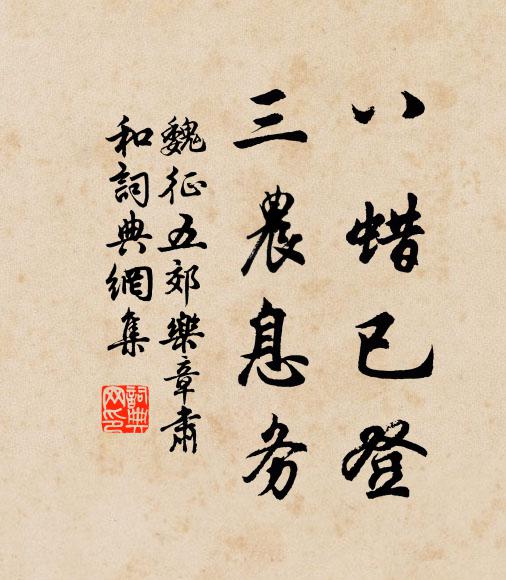 八蜡已登
三農息务
魏征五郊樂章肅
和詞典網集
詞典
网印